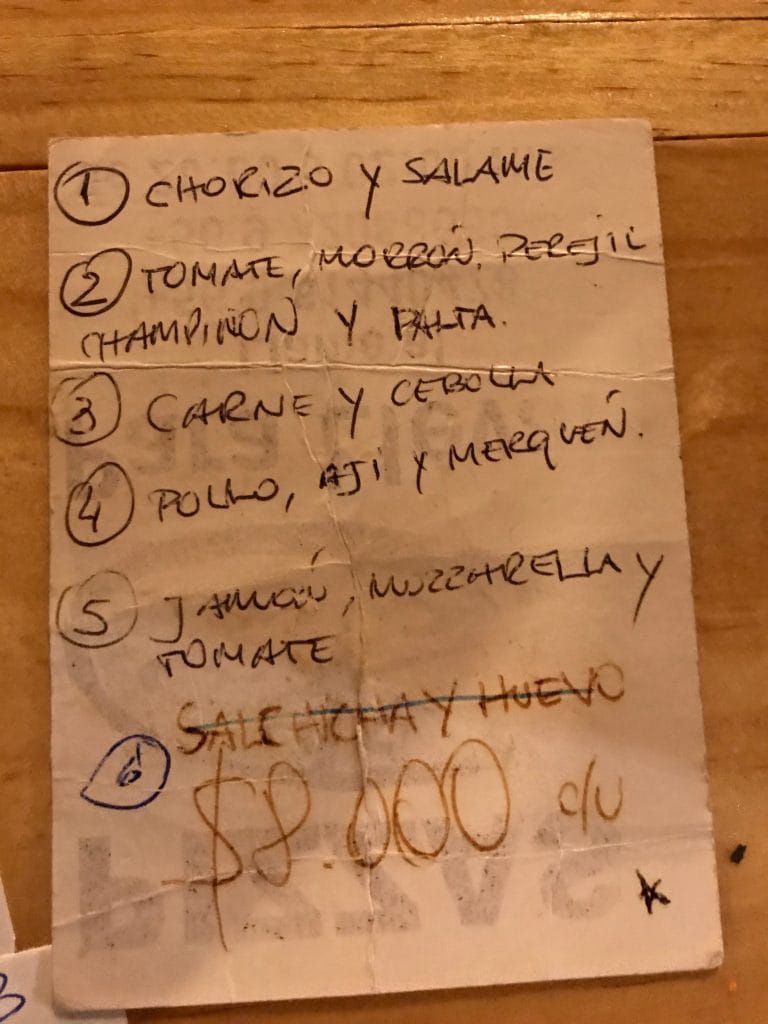 1 CHORIZO Y SALAME
2 TOMATE, MORRÓN, PEREJIL
CHAMPIÑON Y PALTA.
3 CARNE Y CEBOLLA
4 POLLO, AJI Y MERQUÉN.
5 JAMÓN, MUZZARELLA Y
TOMATE
SALCHICHA Y HUEVO
6
$8.000 c/u